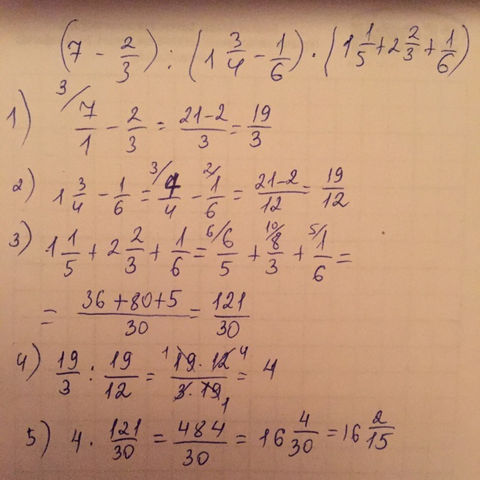 (7 - 2/3) : (1 3/4 - 1/6) · (1 1/5 + 2 2/3 + 1/6)
1) ³⁄ 7/1 - 2/3 = (21-2)/3 = 19/3
2) 1 3/4 - 1/6 = ³⁄ 7/4 - ²⁄ 1/6 = (21-2)/12 = 19/12
3) 1 1/5 + 2 2/3 + 1/6 = ⁶⁄ 6/5 + ¹⁰⁄ 8/3 + ⁵⁄ 1/6 =
= (36+80+5)/30 = 121/30
4) 19/3 : 19/12 = ¹ (19·12)/(3·19) ⁴ ₁ = 4
5) 4 · 121/30 = 484/30 = 16 4/30 = 16 2/15